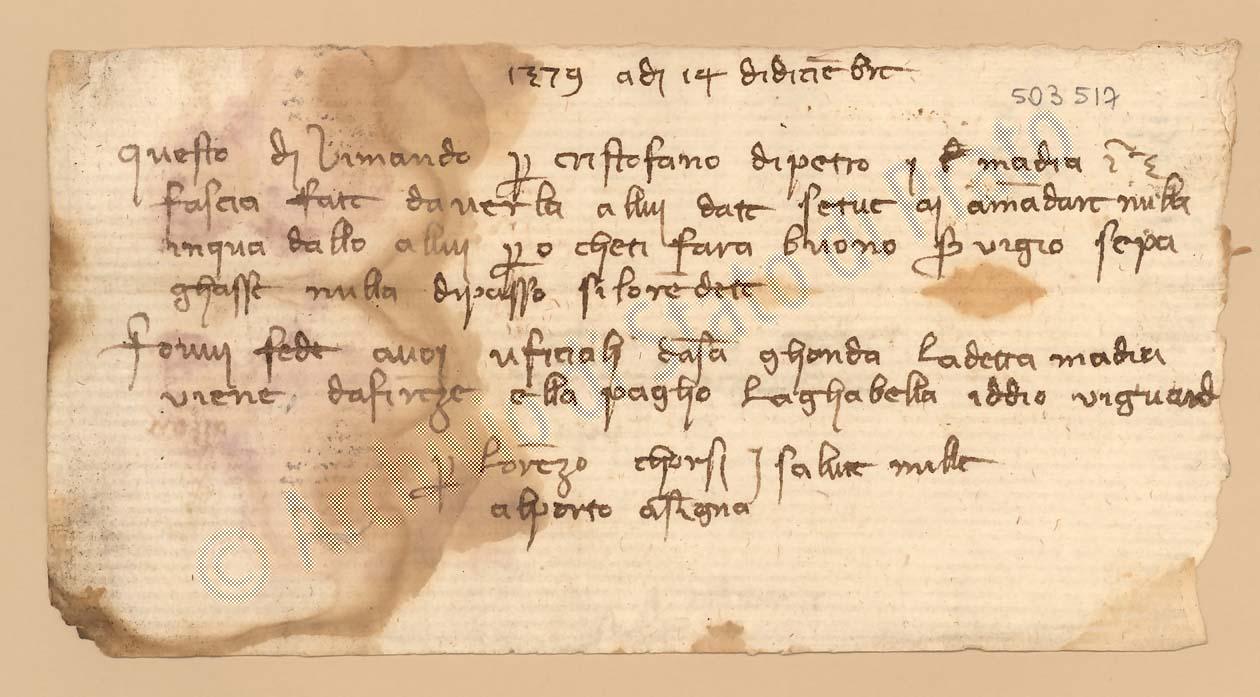 1379 adi 14 didiciēbre
503 517
questo di vi mando p cristofano di petro j madia
fascia fate daverla allui date setue ai amādare nulla
inqua dallo allui p o cheti fara buono s vigio se pa
ghasse nulla dipasso si lorēdete
Fovvi fede avoi uficiali dasa ghonda la detta madia
viene dafirēze ella pagho laghabella iddio vi guard
p Lorēzo chorsi salute mille
alporto asigna
© Archivio di Stato di Prato